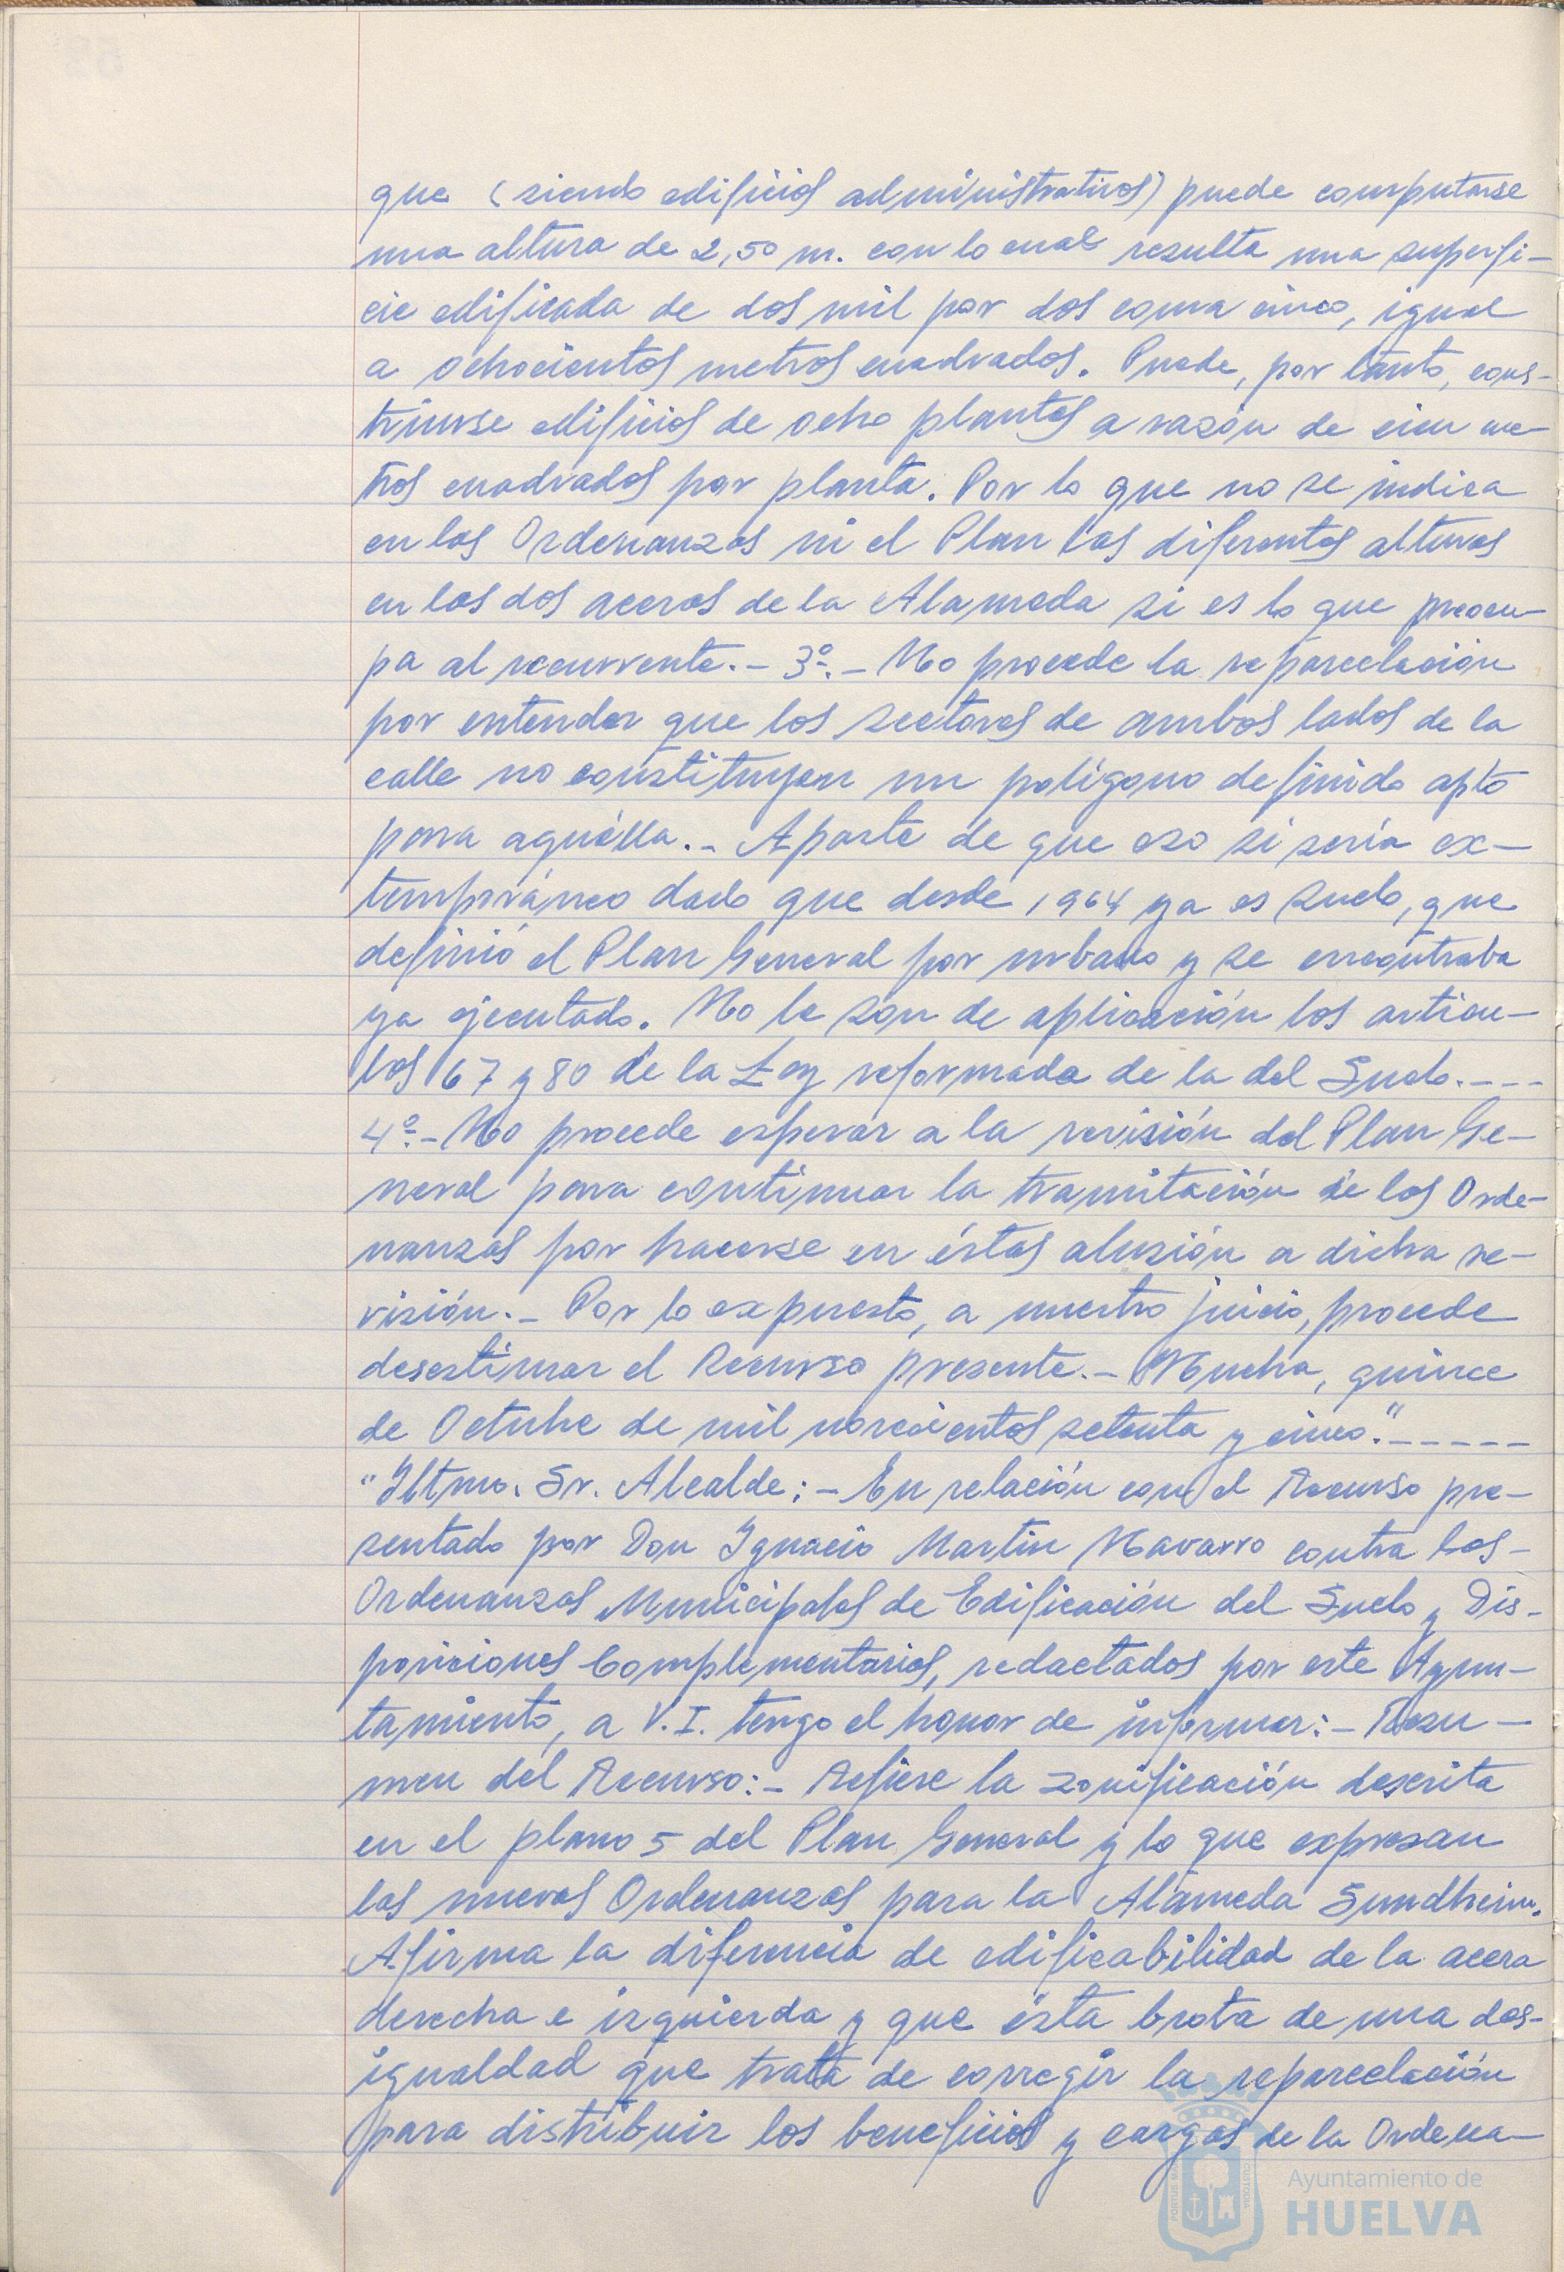 que (siendo edificios administrativos) puede computarse
una altura de 2,50 m. con lo cual resulta una superfi-
cie edificada de dos mil por dos coma cinco, igual
a ochocientos metros cuadrados. Puede, por tanto, cons-
truirse edificios de ocho plantas a razón de cien me-
tros cuadrados por planta. Por lo que no se indica
en las Ordenanzas ni el Plan las diferentes alturas
en las dos aceras de la Alameda si es lo que preocu-
pa al recurrente.- 3º.- No procede la reparcelación
por entender que los sectores de ambos lados de la
calle no constituyen un polígono definido apto
para aquélla.- Aparte de que eso si sería ex-
temporáneo dado que desde 1964 ya es suelo, que
definió el Plan General por urbano y se encontraba
ya ejecutado. No le son de aplicación los artícu-
los 67 y 80 de la Ley reformada de la del Suelo.---
4º.- No procede esperar a la revisión del Plan Ge-
neral para continuar la tramitación de las Orde-
nanzas por hacerse en éstas alusión a dicha re-
visión.- Por lo expuesto, a nuestro juicio, procede
desestimar el Recurso presente.- Huelva, quince
de Octubre de mil novecientos setenta y cinco."-----
"Iltmo. Sr. Alcalde:- En relación con el Recurso pre-
sentado por Don Ignacio Martin Navarro contra las-
Ordenanzas Municipales de Edificación del Suelo y Dis-
posiciones Complementarias, redactadas por este Ayun-
tamiento, a V.I. tengo el honor de informar:- Resu-
men del Recurso:- Refiere la zonificación descrita
en el plano 5 del Plan General y lo que expresan
las nuevas Ordenanzas para la Alameda Sundheim.
Afirma la diferencia de edificabilidad de la acera
derecha e izquierda y que ésta brota de una des-
igualdad que trata de corregir la reparcelación
para distribuir los beneficios y cargas de la Ordena-
Ayuntamiento de
HUELVA